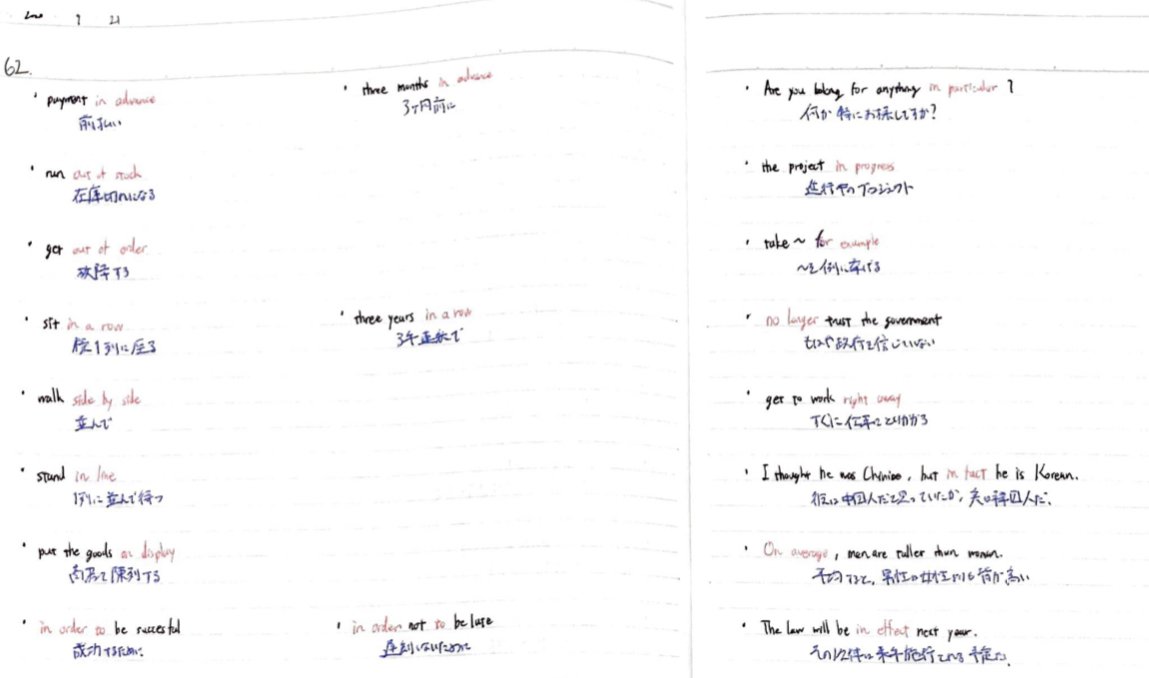 62.
・payment in advance
前払い
・three months in advance
3ヶ月前に
・run out of stock
在庫切れになる
・get out of order
故障する
・sit in a row
横1列に座る
・three years in a row
3年連続で
・walk side by side
並んで
・stand in line
1列に並んで待つ
・put the goods on display
商品を陳列する
・in order to be succesful
成功するために
・in order not to be late
遅刻しないために
・Are you looking for anything in particular ?
何か特にお探しですか?
・the project in progress
進行中のプロジェクト
・take ~ for example
~を例に挙げる
・no longer trust the government
もはや政府を信じていない
・get to work right away
すぐに仕事にとりかかる
・I thought he was Chinise, but in fact he is Korean.
彼は中国人だと思っていたが、実は韓国人だ.
・On average, men are taller than women.
平均すると、男性は女性よりも背が高い
・The law will be in effect next year.
その法律は来年施行される予定だ.